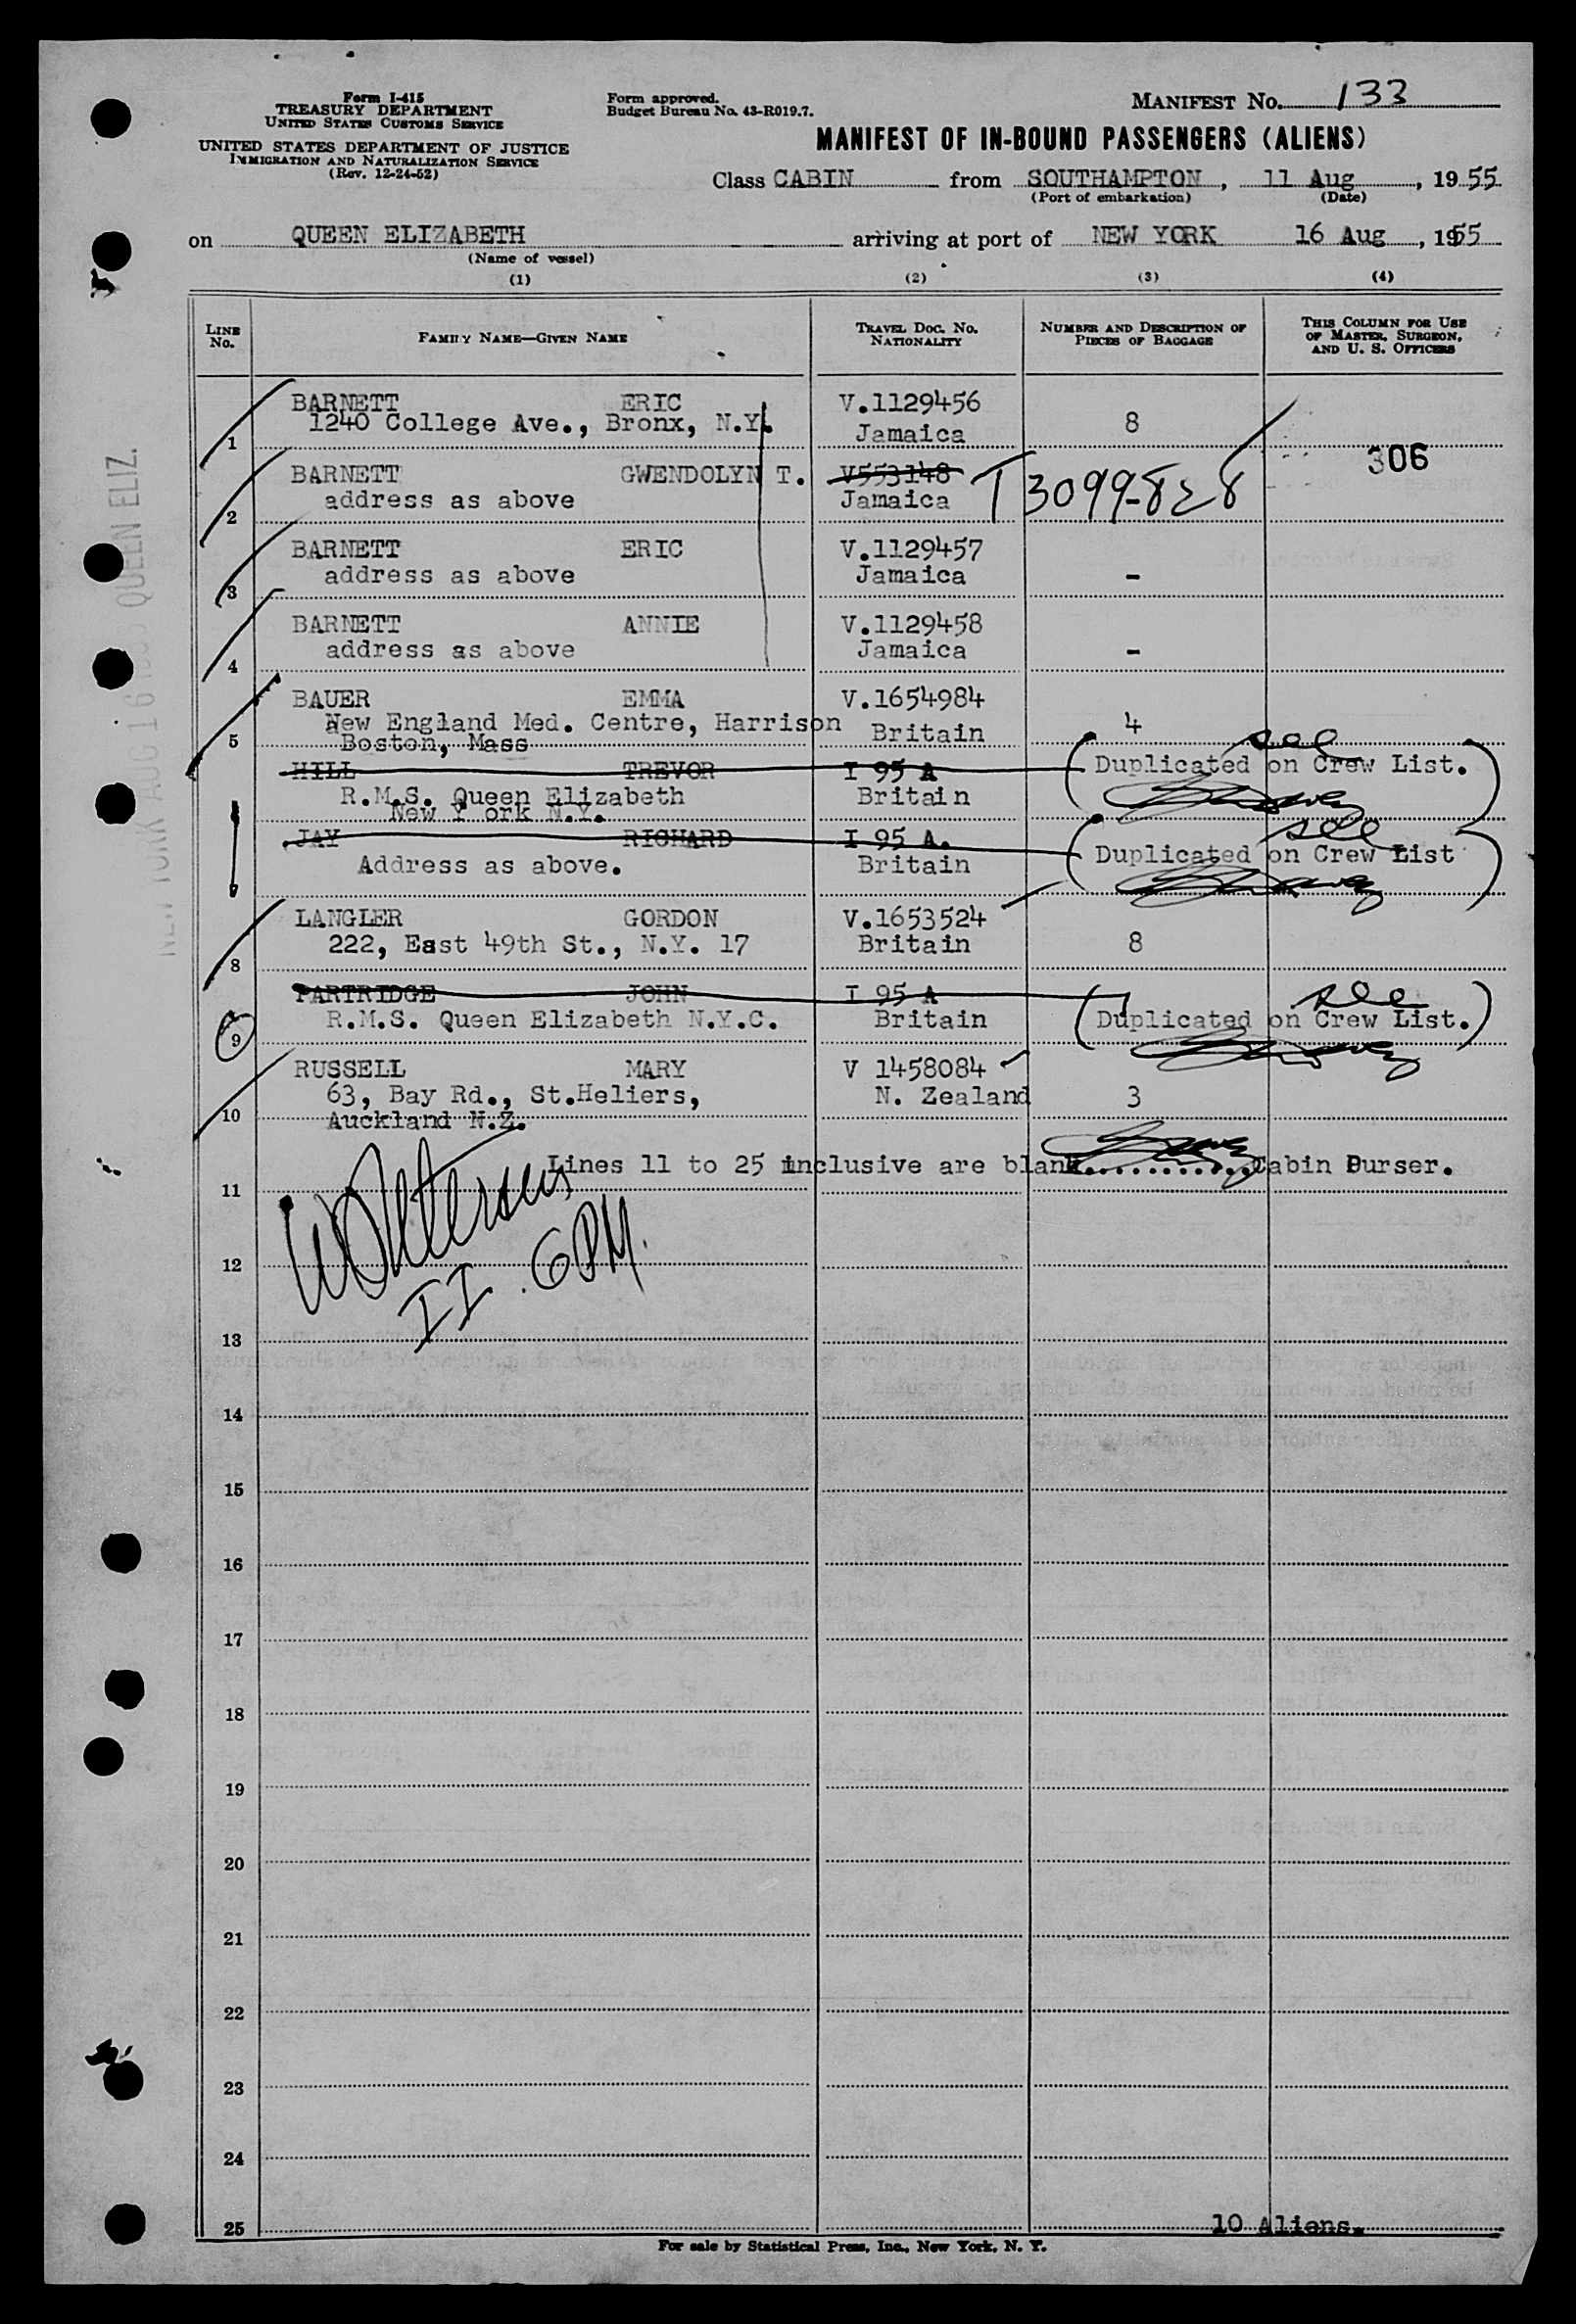 Form I-415
TREASURY DEPARTMENT
UNITED STATES CUSTOMS SERVICE
UNITED STATES DEPARTMENT OF JUSTICE
IMMIGRATION AND NATURALIZATION SERVICE
(Rev. 12-24-52)
Form approved.
Budget Bureau No. 43-R019.7.
MANIFEST No. 133
MANIFEST OF IN-BOUND PASSENGERS (ALIENS)
Class CABIN from SOUTHAMPTON, 11 Aug, 1955
(Port of embarkation) (Date)
on QUEEN ELIZABETH arriving at port of NEW YORK 16 Aug, 1955
(Name of vessel)
(1) (2) (3) (4)
LINE No. FAMILY NAME—GIVEN NAME TRAVEL DOC. No. NATIONALITY NUMBER AND DESCRIPTION OF PIECES OF BAGGAGE THIS COLUMN FOR USE OF MASTER, SURGEON, AND U. S. OFFICERS
BARNETT ERIC V.1129456
1 1240 College Ave., Bronx, N.Y. Jamaica 8
306
BARNETT GWENDOLYN T. V553148 T 3099-828
2 address as above Jamaica
BARNETT ERIC V.1129457
3 address as above Jamaica -
BARNETT ANNIE V.1129458
4 address as above Jamaica -
BAUER EMMA V.1654984
New England Med. Centre, Harrison Britain 4
5 Boston, Mass
see
HILL TREVOR I 95 A Duplicated on Crew List.
R.M.S. Queen Elizabeth Britain
New York N.Y.
see
JAY RICHARD I 95 A. Duplicated on Crew List
Address as above. Britain
LANGLER GORDON V.1653524
8 222, East 49th St., N.Y. 17 Britain 8
PARTRIDGE JOHN I 95 A see
9 R.M.S. Queen Elizabeth N.Y.C. Britain Duplicated on Crew List.
RUSSELL MARY V 1458084
63, Bay Rd., St.Heliers, N. Zealand 3
10 Auckland N.Z.
Lines 11 to 25 inclusive are blank............Cabin Purser.
11
12
II. GPM.
13
14
15
16
17
18
19
20
21
22
23
24
25 10 Aliens.
For sale by Statistical Press, Inc., New York, N. Y.